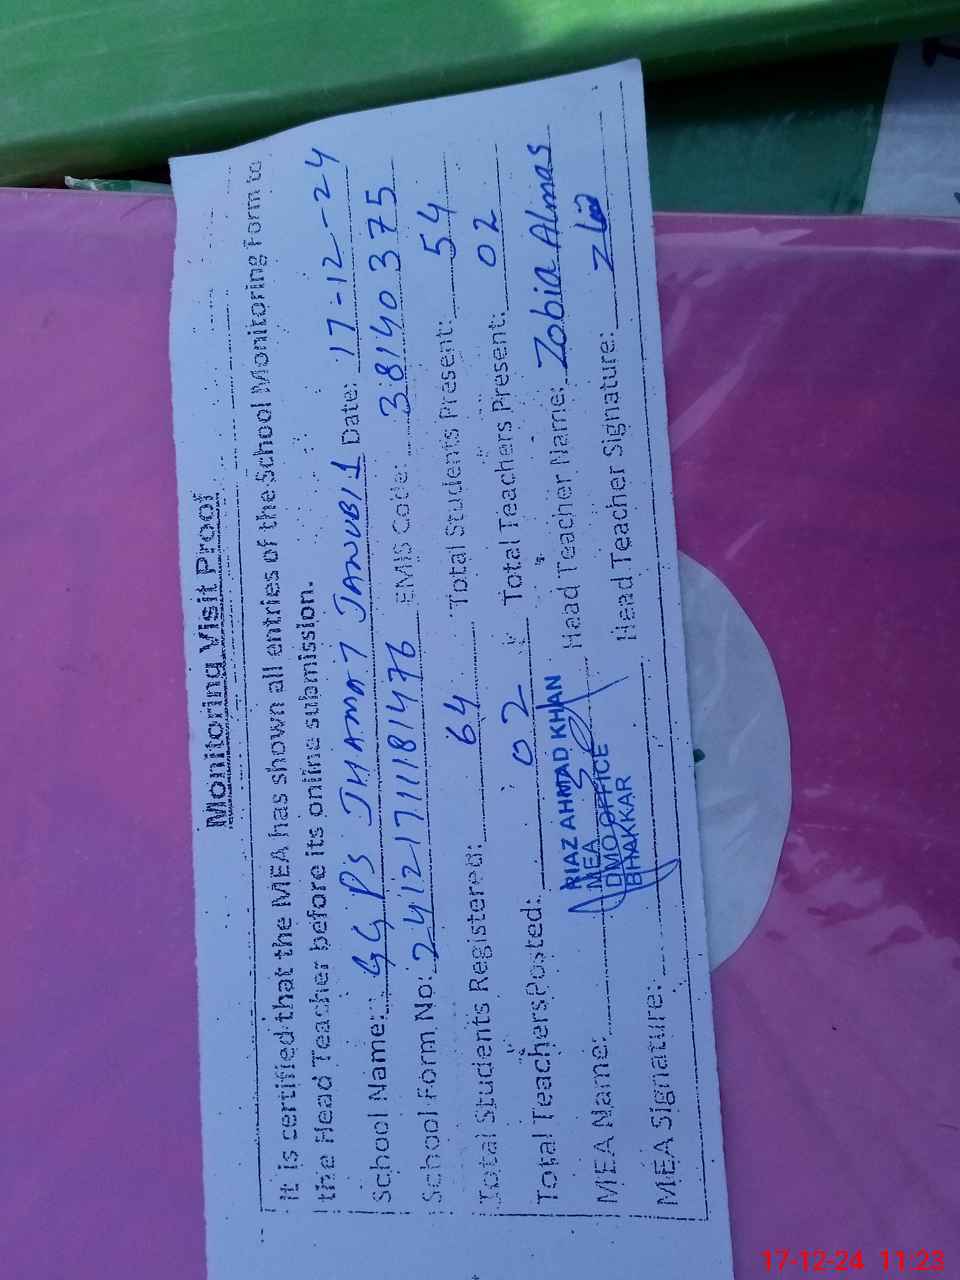 Monitoring Visit Proof
It is certified that the MEA has shown all entries of the School Monitoring Form to
the Head Teacher before its online submission.
School Name: GGPS JHAMAT JANUBI 1 Date: 17-12-24
School Form No: EMIS Code: 38140375
Total Students Registered: 64 Total Students Present: 54
Total Teachers Posted: 02 Total Teachers Present: 02
MEA Name: RIAZ AHMAD KHAN Head Teacher Name: Zobia Almas
MEA
DMO OFFICE
BHAKKAR
MEA Signature: Head Teacher Signature:
17-12-24 11:23